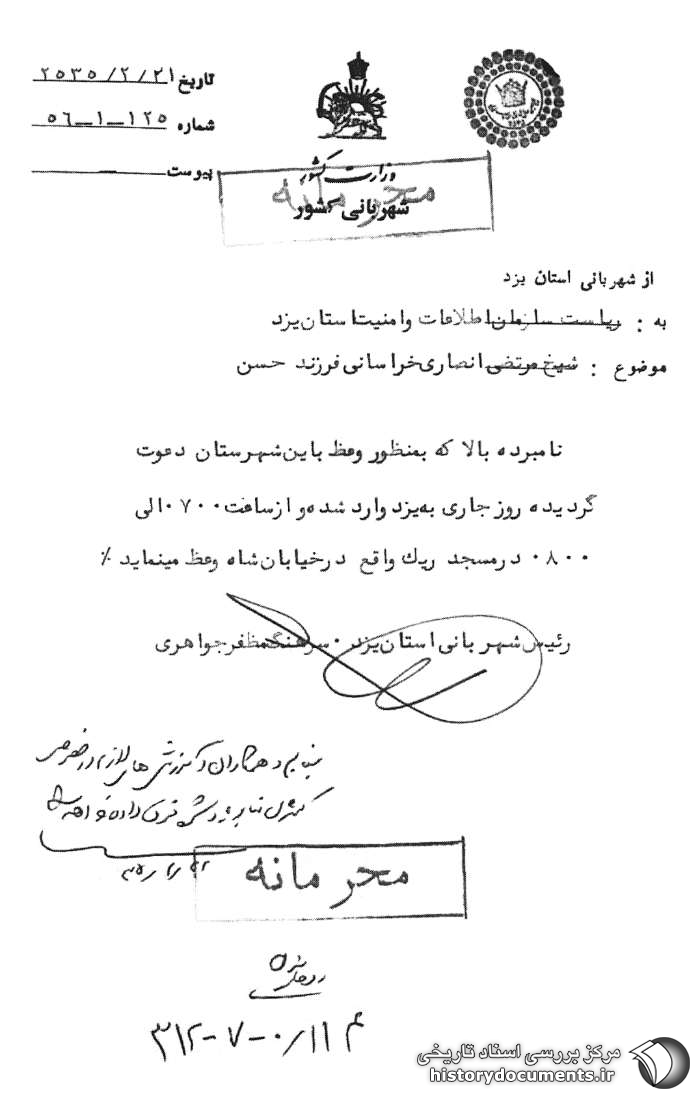 تاریخ ۲۵۳۵/۲/۲۱
شماره ۱۲۵–۱–۵۶
پیوست
وزارت کشور
شهربانی کشور
محرمانه
از شهربانی استان یزد
به : ریاست سازمان اطلاعات و امنیت استان یزد
موضوع : شیخ مرتضی انصاری خراسانی فرزند حسن
نامبرده بالا که بمنظور وعظ باین شهرستان دعوت
گردیده روز جاری به یزد وارد شده و از ساعت ۰۷۰۰ الی
۰۸۰۰ در مسجد ریك واقع در خیابان شاه وعظ مینماید ٪
رئیس شهربانی استان یزد ۰ سرهنگ مظفر جواهری
محرمانه
۳۱۲-۷-۰/۱۱ م
مرکز بررسی اسناد تاریخی
historydocuments.ir